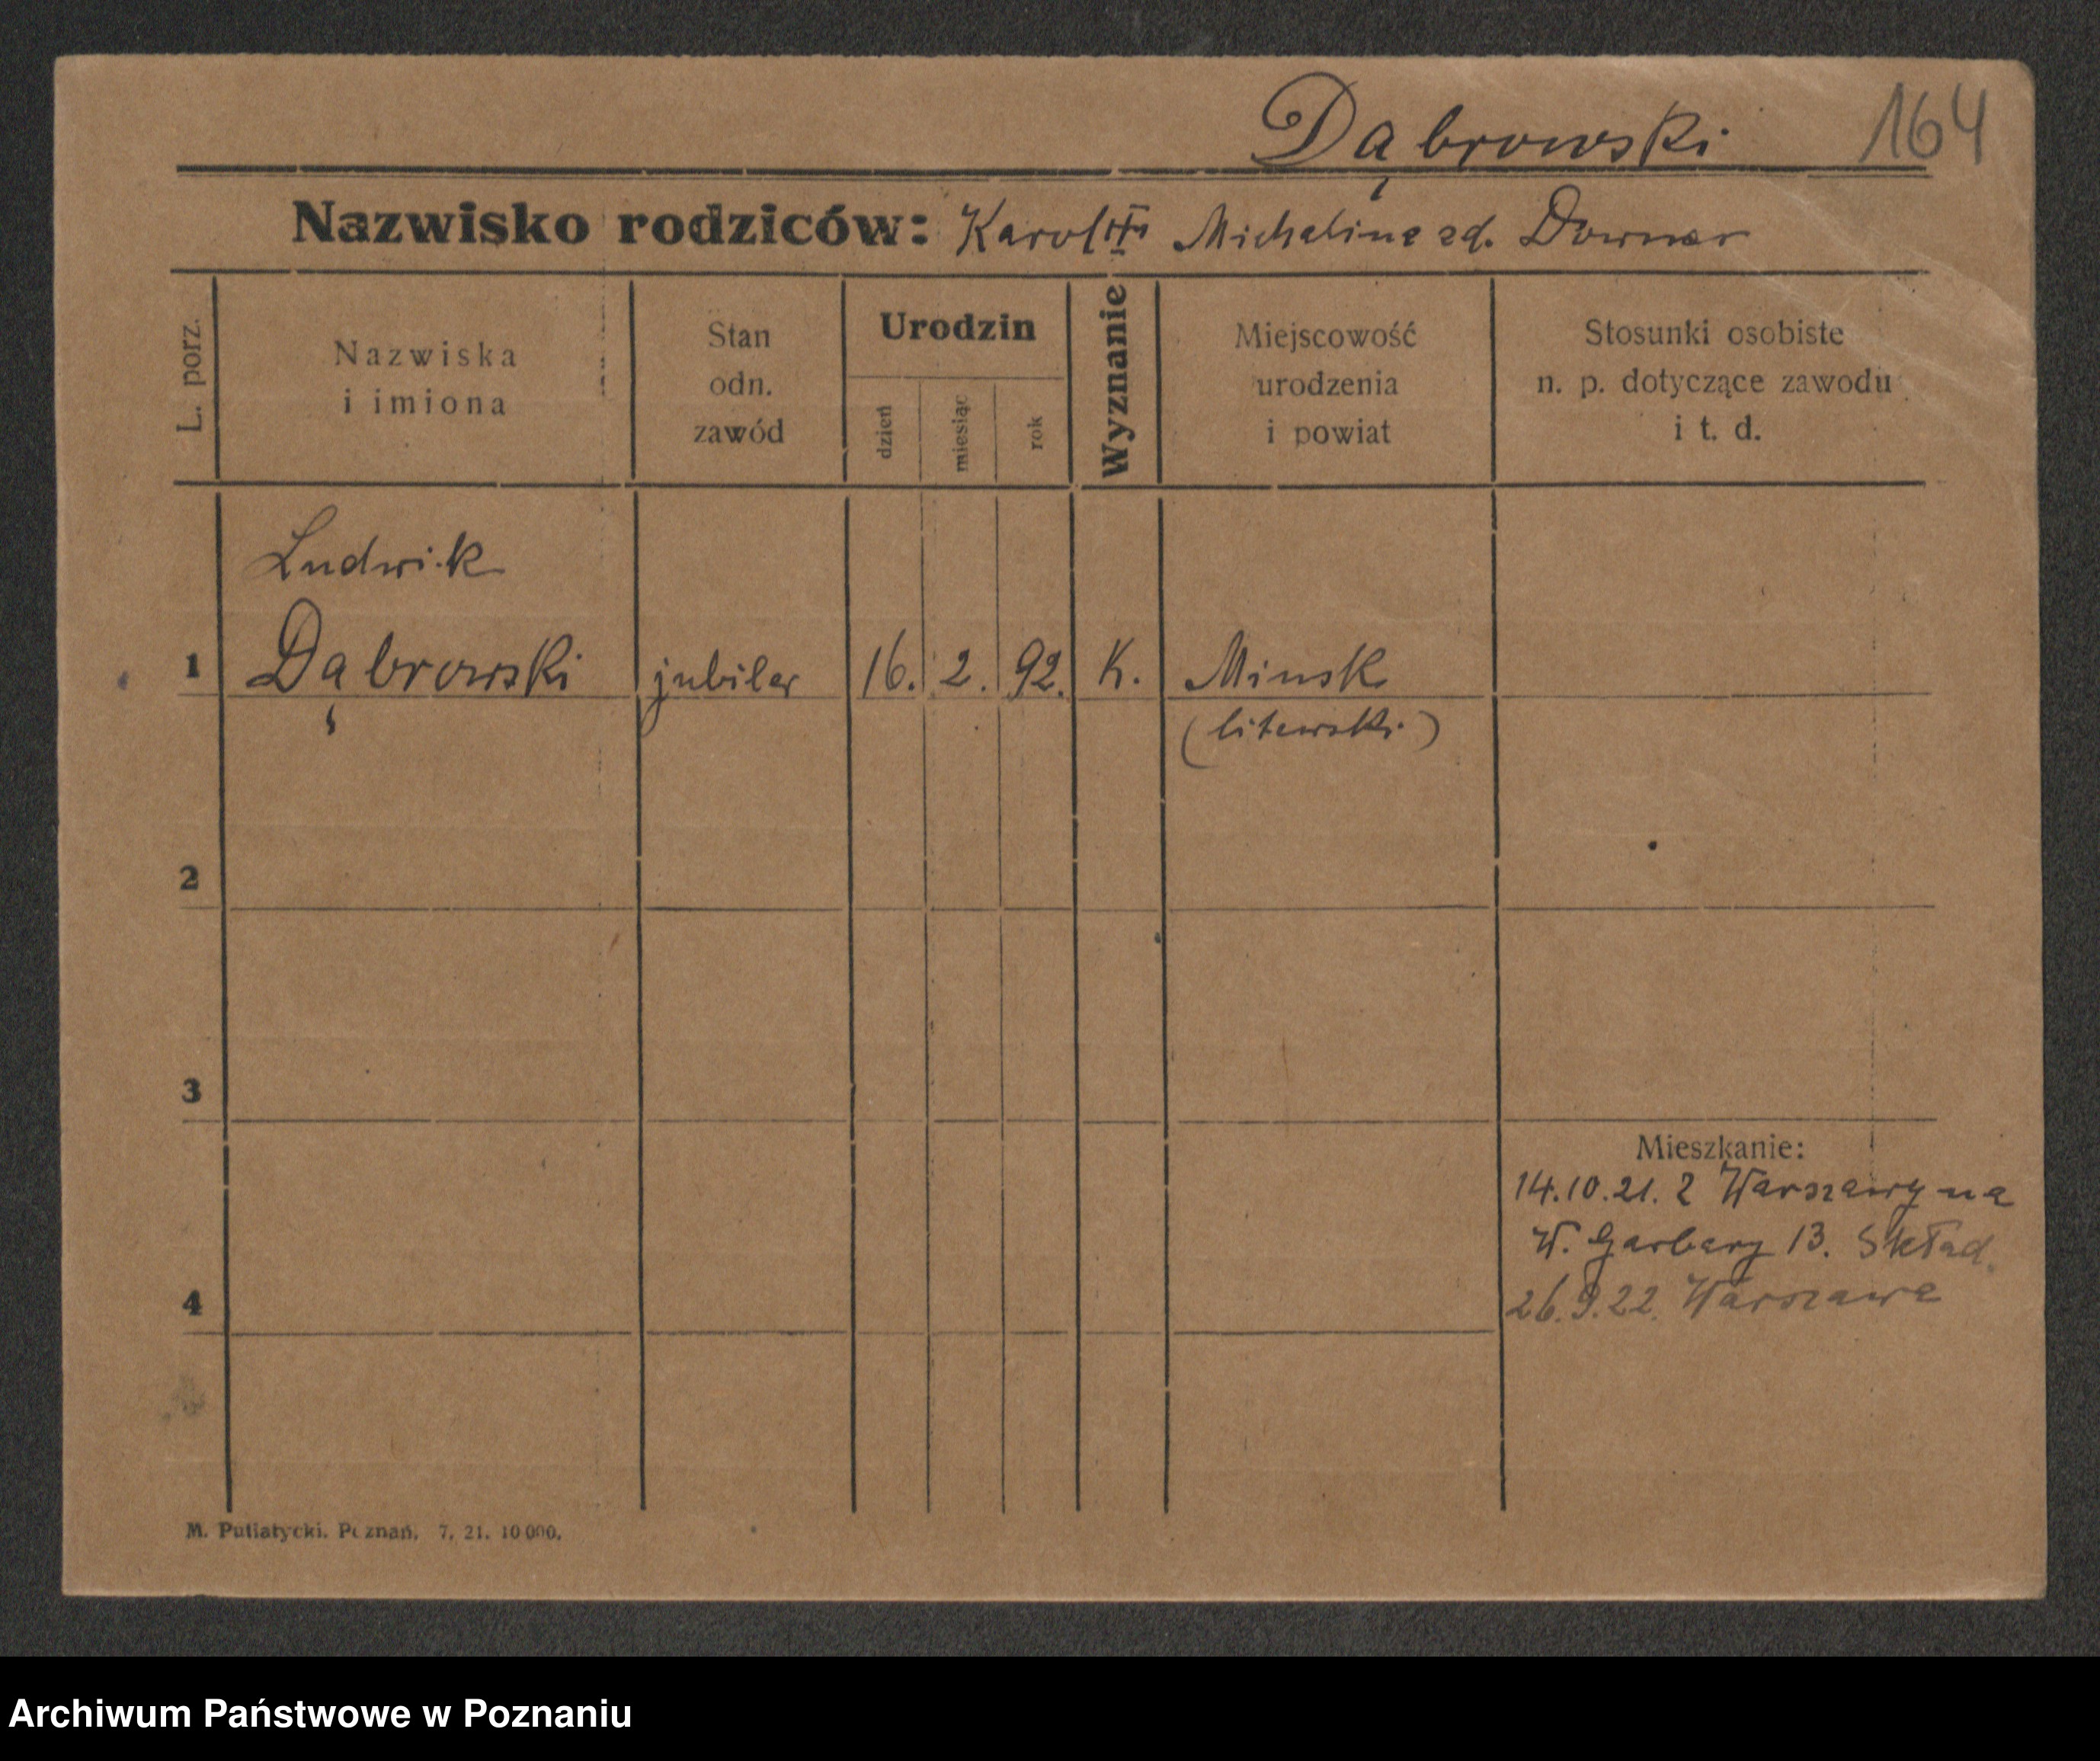 Dąbrowski 164
Nazwisko rodziców: Karol Michalina zd. Downar
L. porz.
Nazwiska
i imiona
Stan
odn.
zawód
Urodzin
dzień
miesiąc
rok
Wyznanie
Miejscowość
urodzenia
i powiat
Stosunki osobiste
n. p. dotyczące zawodu
i t. d.
Ludwik
1 Dąbrowski jubiler 16. 2. 92. K. Minsk
(litewski)
2
3
Mieszkanie:
14.10.21. z Warszawy na
W. Garbary 13. Skład.
4 26.9.22. Warszawa
M. Putiatycki. Poznań. 7. 21. 10000.
Archiwum Państwowe w Poznaniu